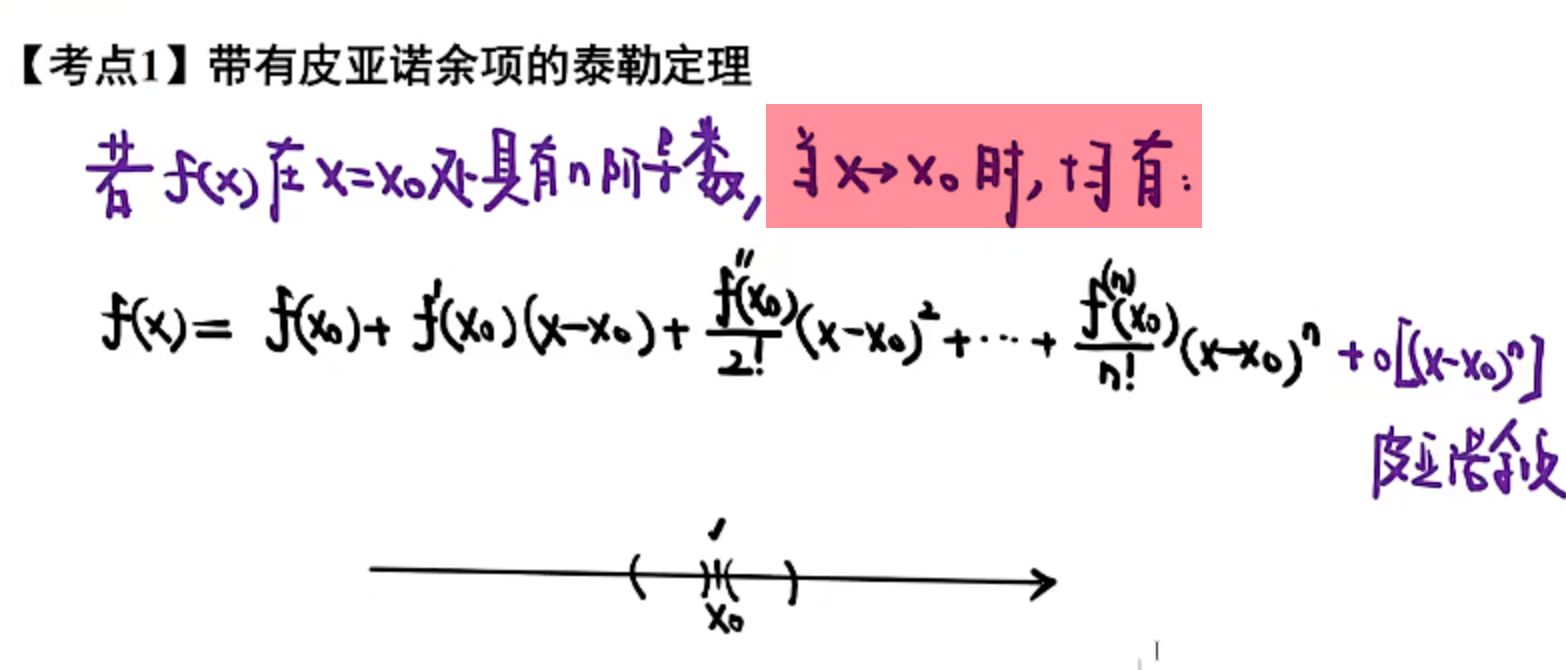 【考点1】带有皮亚诺余项的泰勒定理
若 f(x) 在 x=x₀ 处具有 n 阶导数, 当 x→x₀ 时, 均有:
f(x) = f(x₀) + f'(x₀)(x-x₀) + f''(x₀)/2! (x-x₀)² + ··· + f⁽ⁿ⁾(x₀)/n! (x-x₀)ⁿ + o[(x-x₀)ⁿ]
皮亚诺余项
( )|( )
x₀